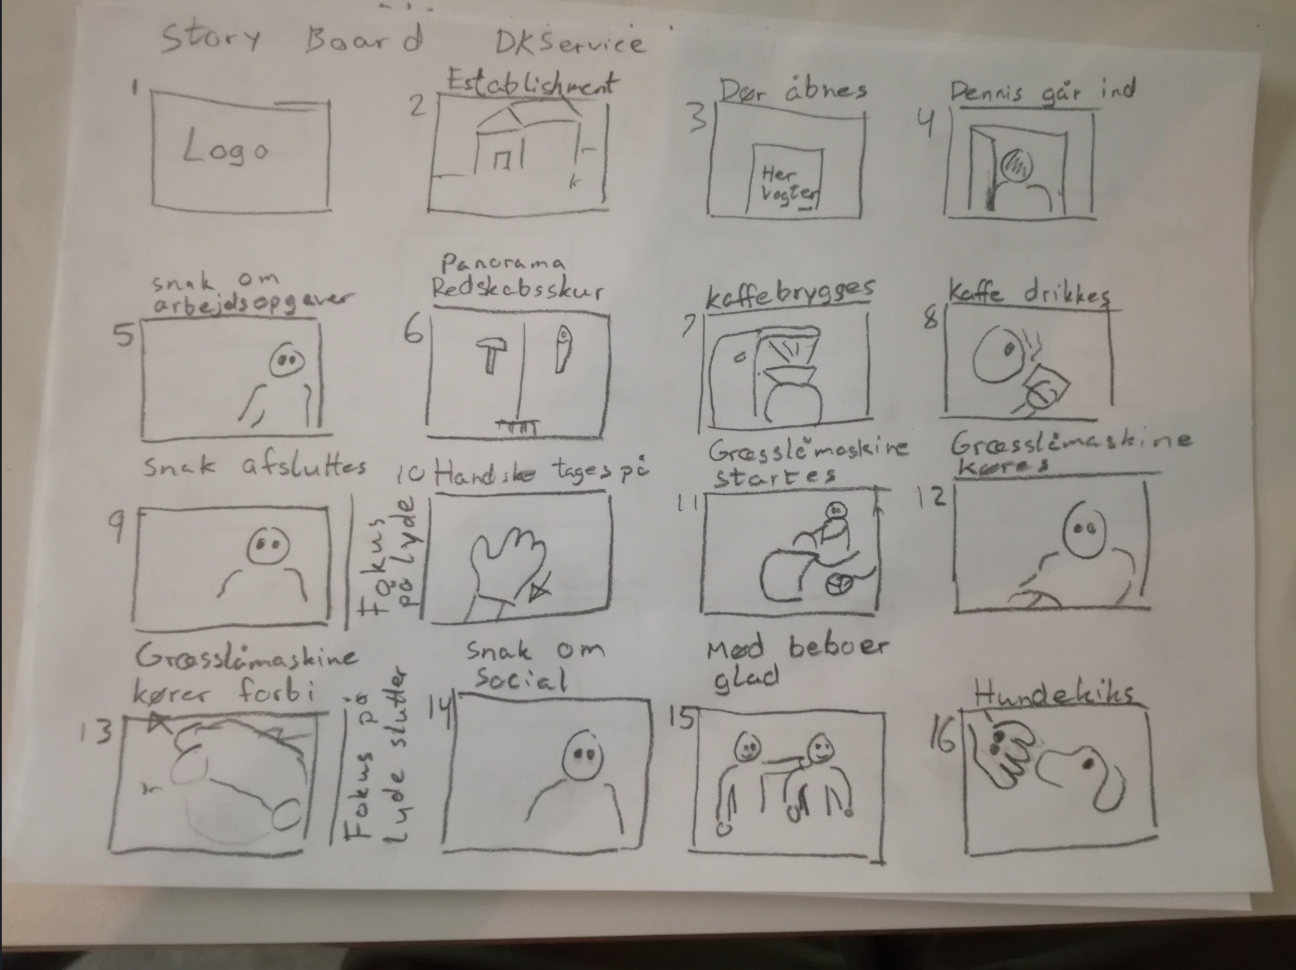 Story Board DKService
1
Logo
2
Establishment
3
Dør åbnes
Her
vogter
4
Dennis går ind
5
snak om
arbejdsopgaver
6
Panorama
Redskabsskur
7
kaffebrygges
8
Kaffe drikkes
9
Snak afsluttes
Fokus
på lyde
10 Handske tages på
11
Græsslåmaskine
startes
12
Græsslåmaskine
køres
13
Græsslåmaskine
kører forbi
Fokus på
lyde slutter
14
Snak om
Social
15
Mød beboer
glad
16
Hundekiks